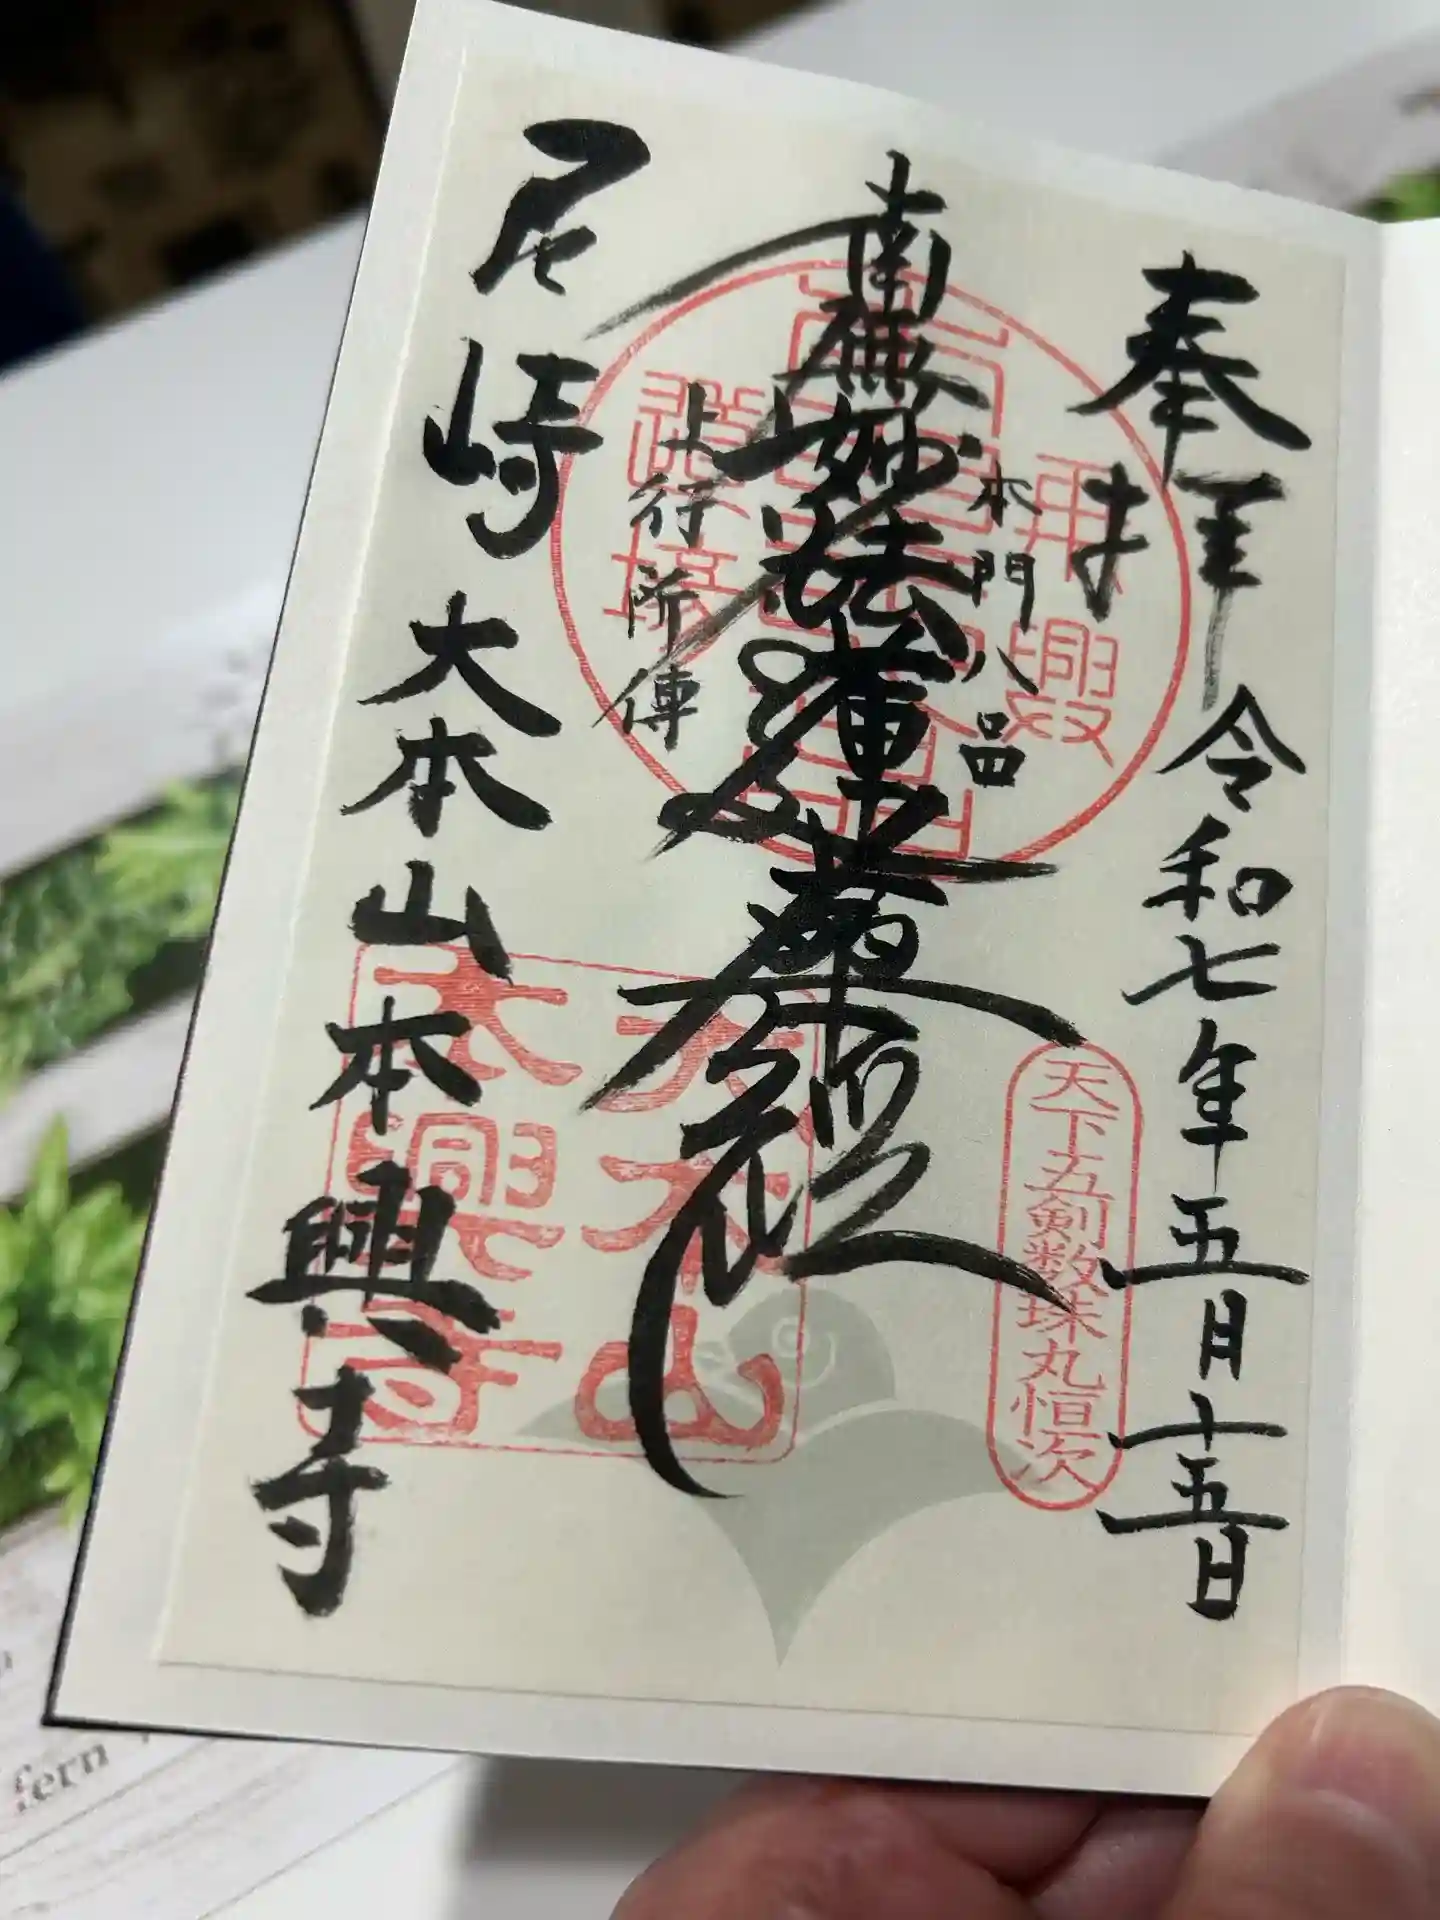 奉拝
令和七年五月十五日
天下五剣数珠丸恒次
本門八品
南無妙法蓮華経
上行所傳
尼崎大本山本興寺
大本山
本興寺